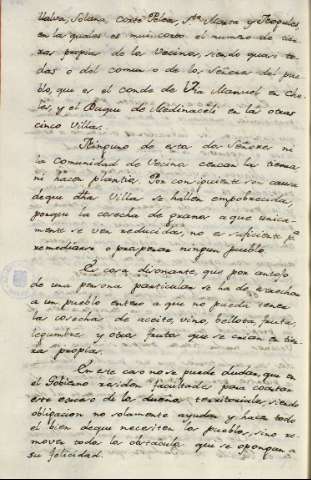 Valva, Solana, corte Peleas, Sta Marta y Nogales,
en las quales es mui corto el numero de tier-
ras propias de los Vecinos, siendo quasi to-
das o del comun o de los Señores del pue-
blo, que es el conde de Via Manuel en Che-
les, y el Duque de Medinaceli en las otras
cinco Villas.
Ninguno de estos dos Señores ni
la Comunidad de Vecinos cercan las tierras
ni hacen plantios. Por consiguiente son causa
de que dhas Villas se hallen empobrecidas,
porque la cosecha de granos a que unica-
mente se ven reducidas, no es suficiente pa
remediarse o prosperar ningun pueblo.
Es cosa disonante, que por antojo
de una persona particular se ha de
a un pueblo entero a que no pueda tener
las cosechas de aceite, vino, bellota, fruta,
legumbres y otros frutos que se crian en tier-
ras propias.
En este caso no se puede dudar, que en
el Gobierno residen facultades para
este de los dueños territoriales, siendo
obligacion no solamente ayuden y hacer todo
el bien de que necesiten los pueblos, sino re-
mover todos los obstaculos que se opongan a
su felicidad.